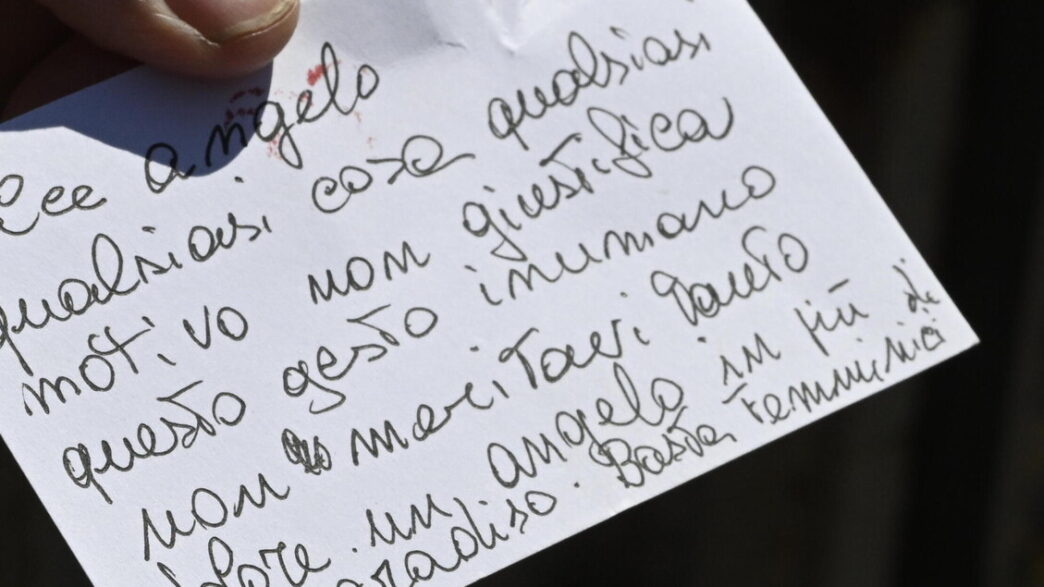 angelo
qualsiasi cosa qualsiasi
motivo non giustifica
questo gesto inumano
non meritavi tanto
dolore. un angelo in più
paradiso. Basta femminicidi